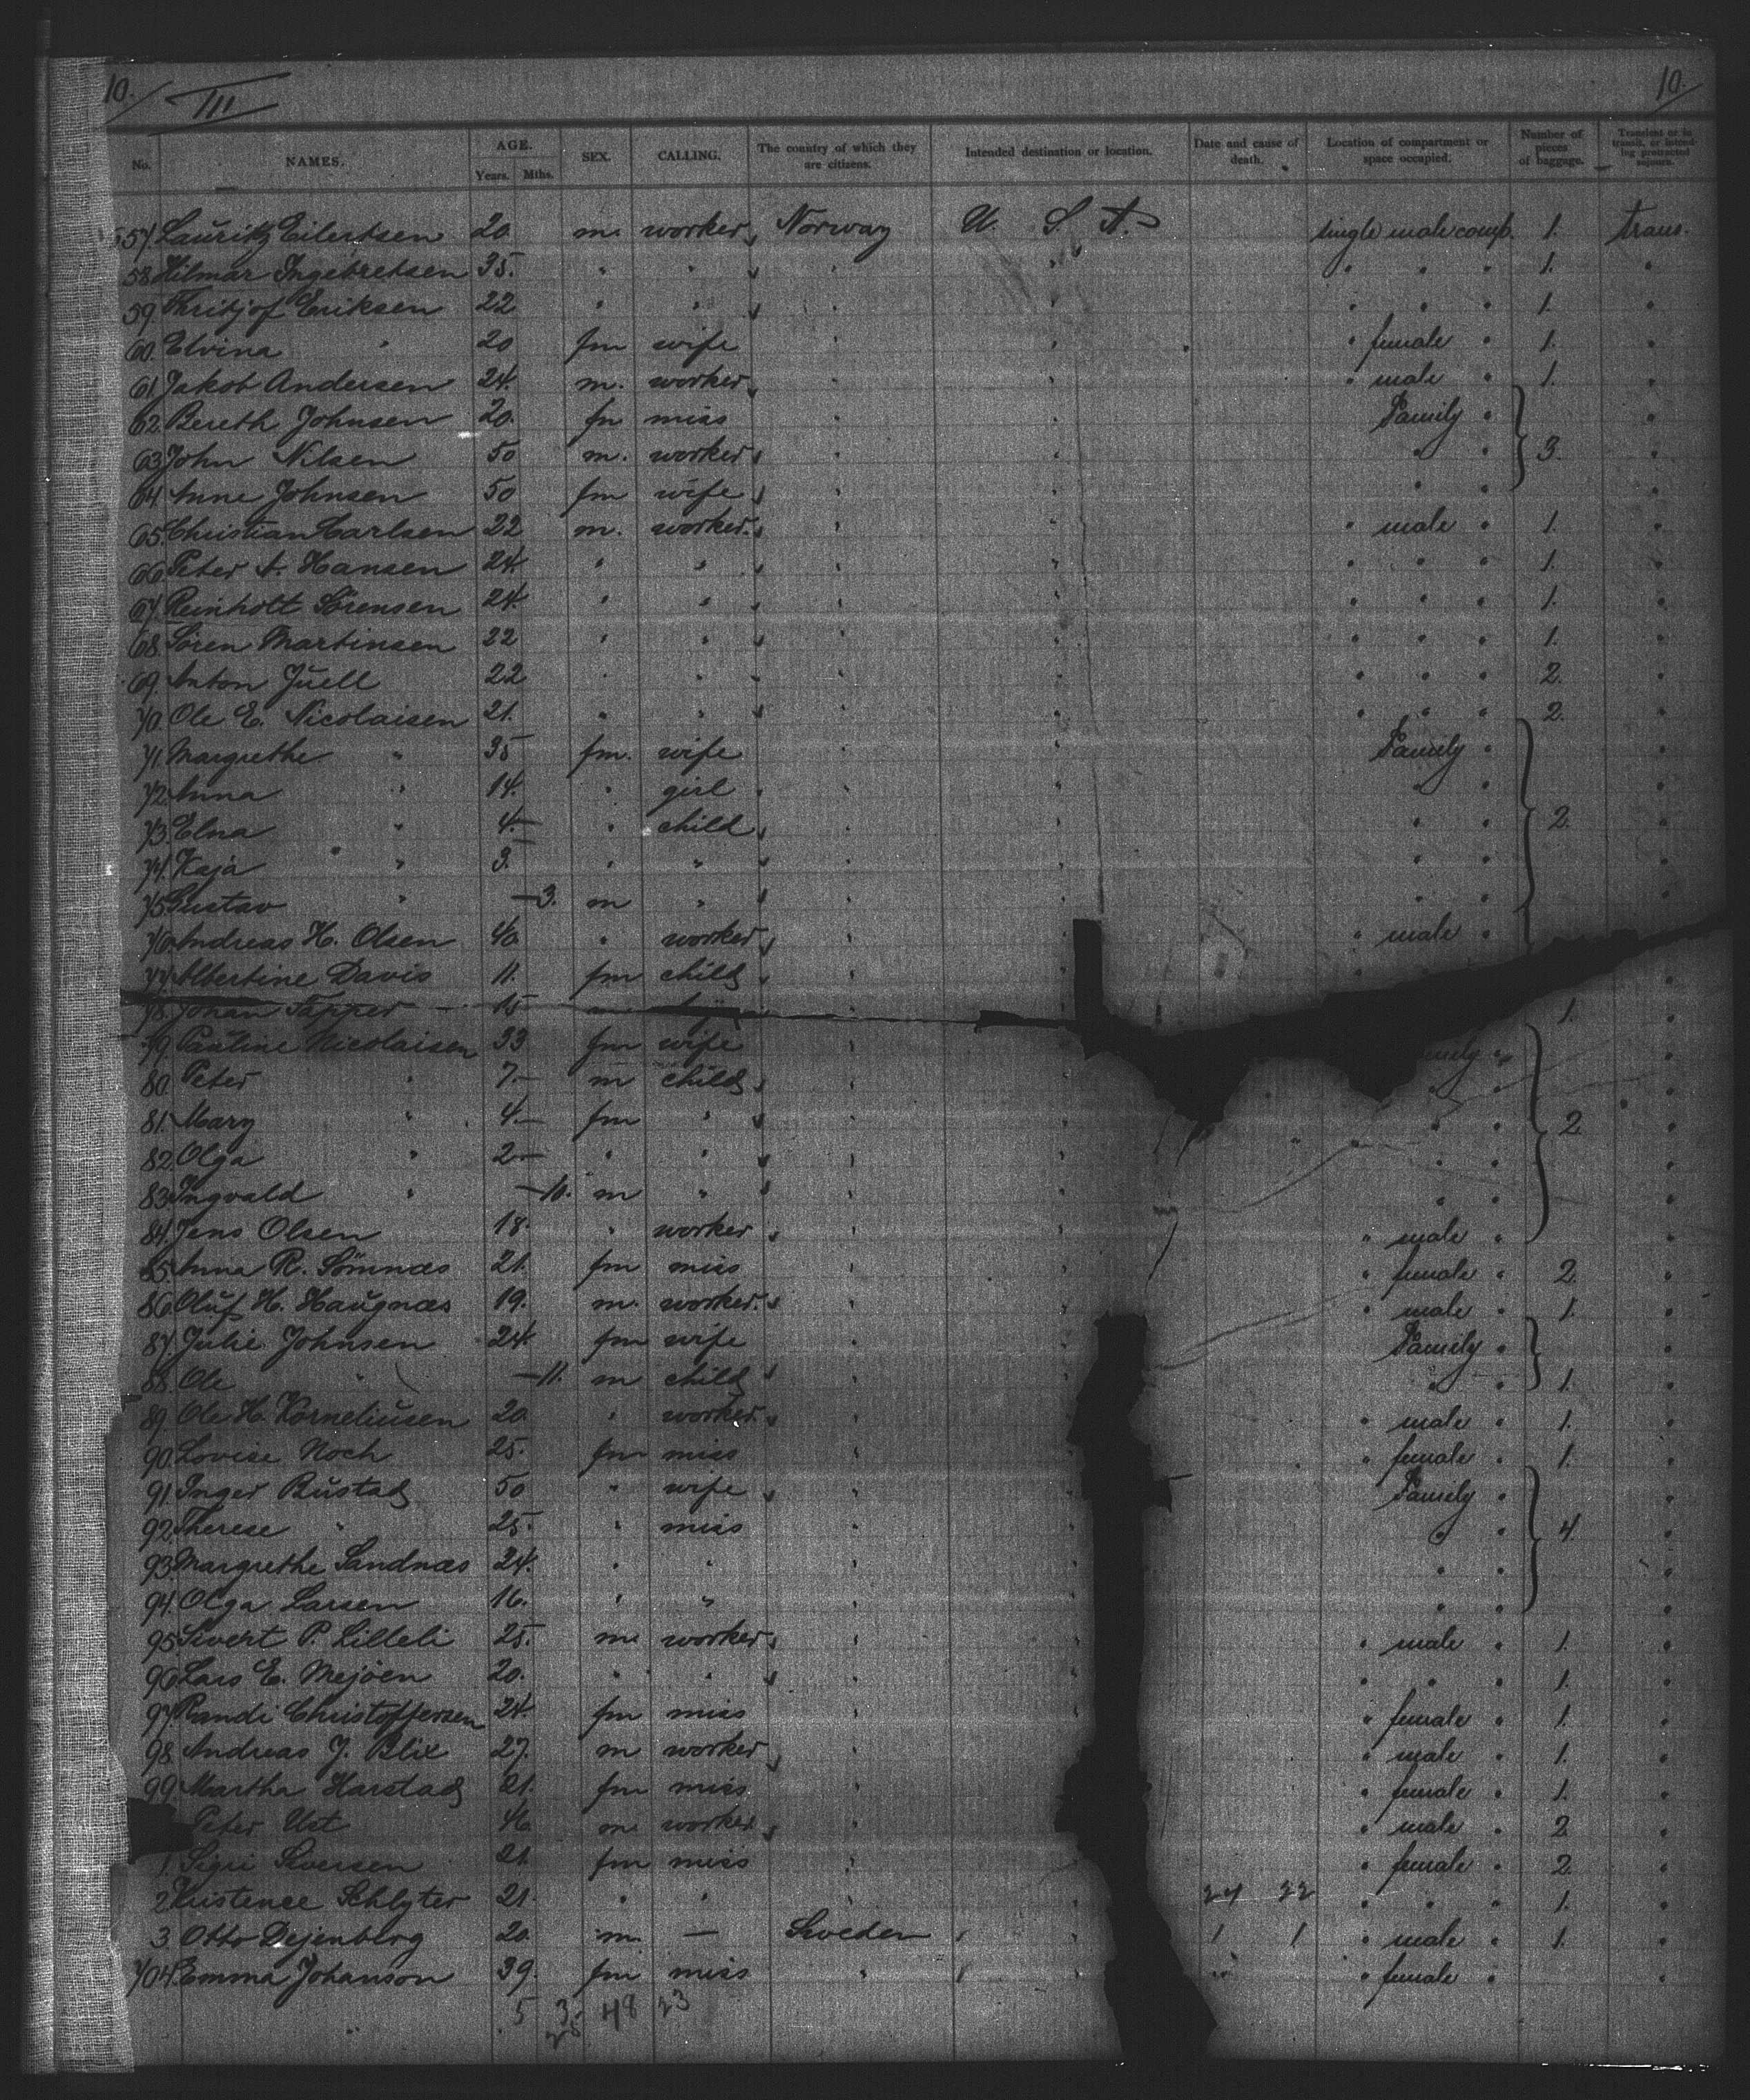 10. III 10.
No. NAMES. AGE. Years. Mths. SEX. CALLING. The country of which they are citizens. Intended destination or location. Date and cause of death. Location of compartment or space occupied. Number of pieces of baggage. Transient or in transit, or intending protracted sojourn.
57. Lauritz Eilertsen 20 m. worker Norway U. S. A. single male comp. 1. trans.
58. Hilmar Ingebretsen 35. " " " " " " " 1. "
59. Thritjof Eriksen 22 " " " " " " " 1. "
60. Elvina " 20 fm wife " " " female " 1. "
61. Jakob Andersen 24. m. worker " " " male " 1. "
62. Bereth Johnsen 20. fm miss " " Family " "
63. John Nilsen 50 m. worker " " " " 3. "
64. Anne Johnsen 50 fm wife " " " " "
65. Christian Carlsen 22 m. worker. " " " male " 1. "
66. Peter A. Hansen 24. " " " " " " " 1. "
67. Reinholt Sörensen 24. " " " " " " " 1. "
68. Sören Martinsen 22 " " " " " " " 1. "
69. Anton Juell 22 " " " " " " " 2. "
70. Ole E. Nicolaisen 21. " " " " " " " 2. "
71. Margrethe " 35 fm. wife " " Family " "
72. Anna " 14. " girl " " " " "
73. Elna " 4.— " child " " " " 2. "
74. Kaja " 3. " " " " " " "
75. Gustav " —3. m " " " " " "
76. Andreas H. Olsen 40. " worker " " " male "
77. Albertine Davis 11. fm child " " "
78. Johan Tapper 15 1. "
79. Pauline Nicolaisen 33 fm wife " " "
80. Peter " 7.— m child " " " " "
81. Mary " 4.— fm " " " " " 2. "
82. Olga " 2— " " " " " " "
83. Ingvald " —10. m " " " " " "
84. Jens Olsen 18. " worker " " " male " "
85. Anna R. Sömnæs 21. fm miss " " " female " 2. "
86. Oluf H. Haugnæs 19. m. worker. " " " male " 1. "
87. Julie Johnsen 24. fm wife " " Family " "
88. Ole " —11. m child " " " " 1. "
89. Ole H. Korneliusen 20. " worker. " " " male " 1. "
90. Lovise Noch 25. fm miss " " " female " 1. "
91. Inger Rustad 50 " wife " " Family " "
92. Therese " 25. " miss " " " " 4. "
93. Margrethe Sandnæs 24. " " " " " " "
94. Olga Larsen 16. " " " " " " "
95. Sivert P. Lilleli 25. m. worker " " " male " 1. "
96. Lars E. Mejöen 20. " " " " " " " 1. "
97. Randi Christoffersen 24. fm miss " " " female " 1. "
98. Andreas J. Blix 27. m worker " " " male " 1. "
99. Martha Harstad 21. fm miss " " " female " 1. "
Peter Ust m. worker " " " male " 2. "
1. Sigri Siversen 21 fm miss " " " female " 2. "
2. Kristence Schlyter 21. " " " " 24 22 " " " 1. "
3. Otto Dejenblog 20. m. — Sweden " 1 1 " male " 1. "
704. Emma Johanson 39. fm miss " " " female " "
5 35 48 23
25